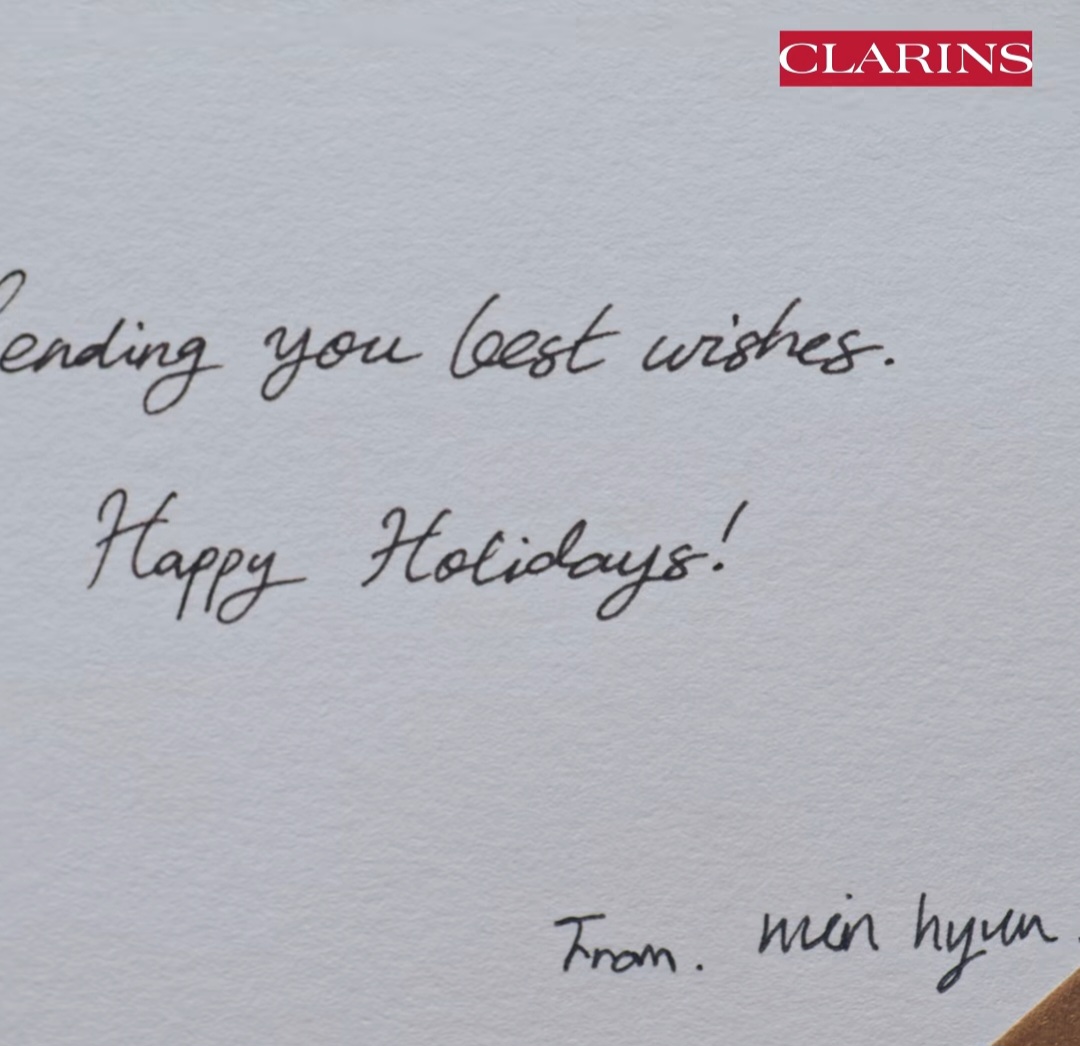 CLARINS
Sending you best wishes.
Happy Holidays!
From. min hyun.